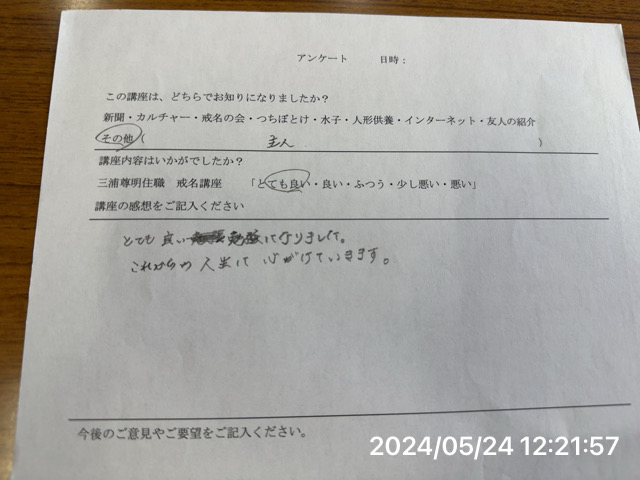 アンケート　　日時：
この講座は、どちらでお知りになりましたか？
新聞・カルチャー・戒名の会・つちぼとけ・水子・人形供養・インターネット・友人の紹介
その他（　　　主人　　　）
講座内容はいかがでしたか？
三浦尊明住職　戒名講座　「とても良い・良い・ふつう・少し悪い・悪い」
講座の感想をご記入ください
とても良い勉強になりました。
これからの人生に心がけていきます。
今後のご意見やご要望をご記入ください。
2024/05/24 12:21:57